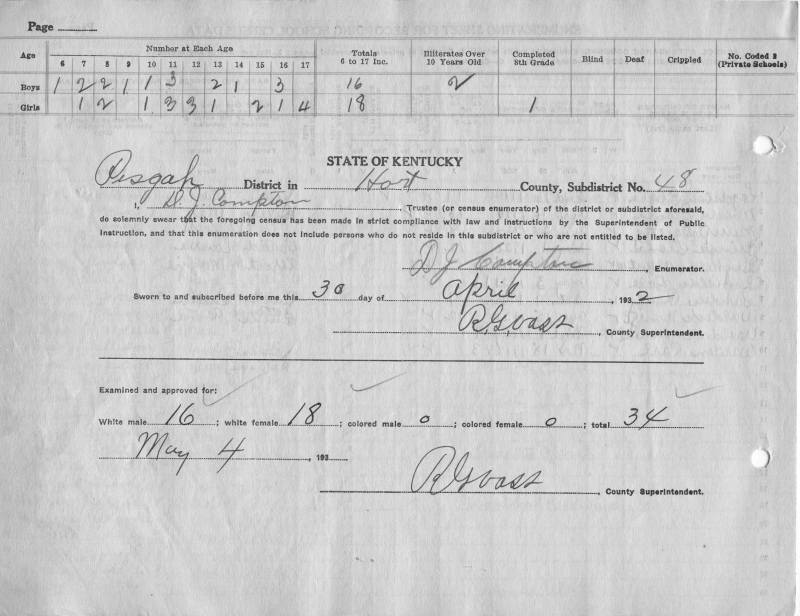 Page
Age Number at Each Age Totals 6 to 17 Inc. Illiterates Over 10 Years Old Completed 8th Grade Blind Deaf Crippled No. Coded 2 (Private Schools)
6 7 8 9 10 11 12 13 14 15 16 17
Boys 1 2 2 1 1 3 2 1 3 16 2
Girls 1 2 1 3 3 1 2 1 4 18 1
STATE OF KENTUCKY
Pisgah District in Hart County, Subdistrict No. 48
I, D. J. Compton, Trustee (or census enumerator) of the district or subdistrict aforesaid,
do solemnly swear that the foregoing census has been made in strict compliance with law and instructions by the Superintendent of Public
Instruction, and that this enumeration does not include persons who do not reside in this subdistrict or who are not entitled to be listed.
D J Compton, Enumerator.
Sworn to and subscribed before me this 30 day of April, 1932
R. G. Vass, County Superintendent.
Examined and approved for:
White male 16; white female 18; colored male 0; colored female 0; total 34
May 4, 193
R G Vass, County Superintendent.